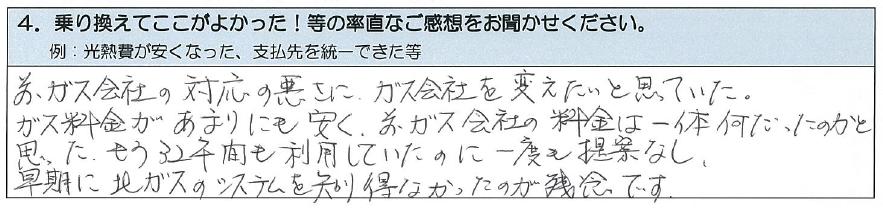 4. 乗り換えてここがよかった！等の率直なご感想をお聞かせください。
例：光熱費が安くなった、支払先を統一できた等
前ガス会社の対応の悪さに、ガス会社を変えたいと思っていた。
ガス料金があまりにも安く、前ガス会社の料金は一体何だったのかと
思った。もう32年間も利用していたのに一度も提案なし、
早期に北ガスのシステムを知り得なかったのが残念です。